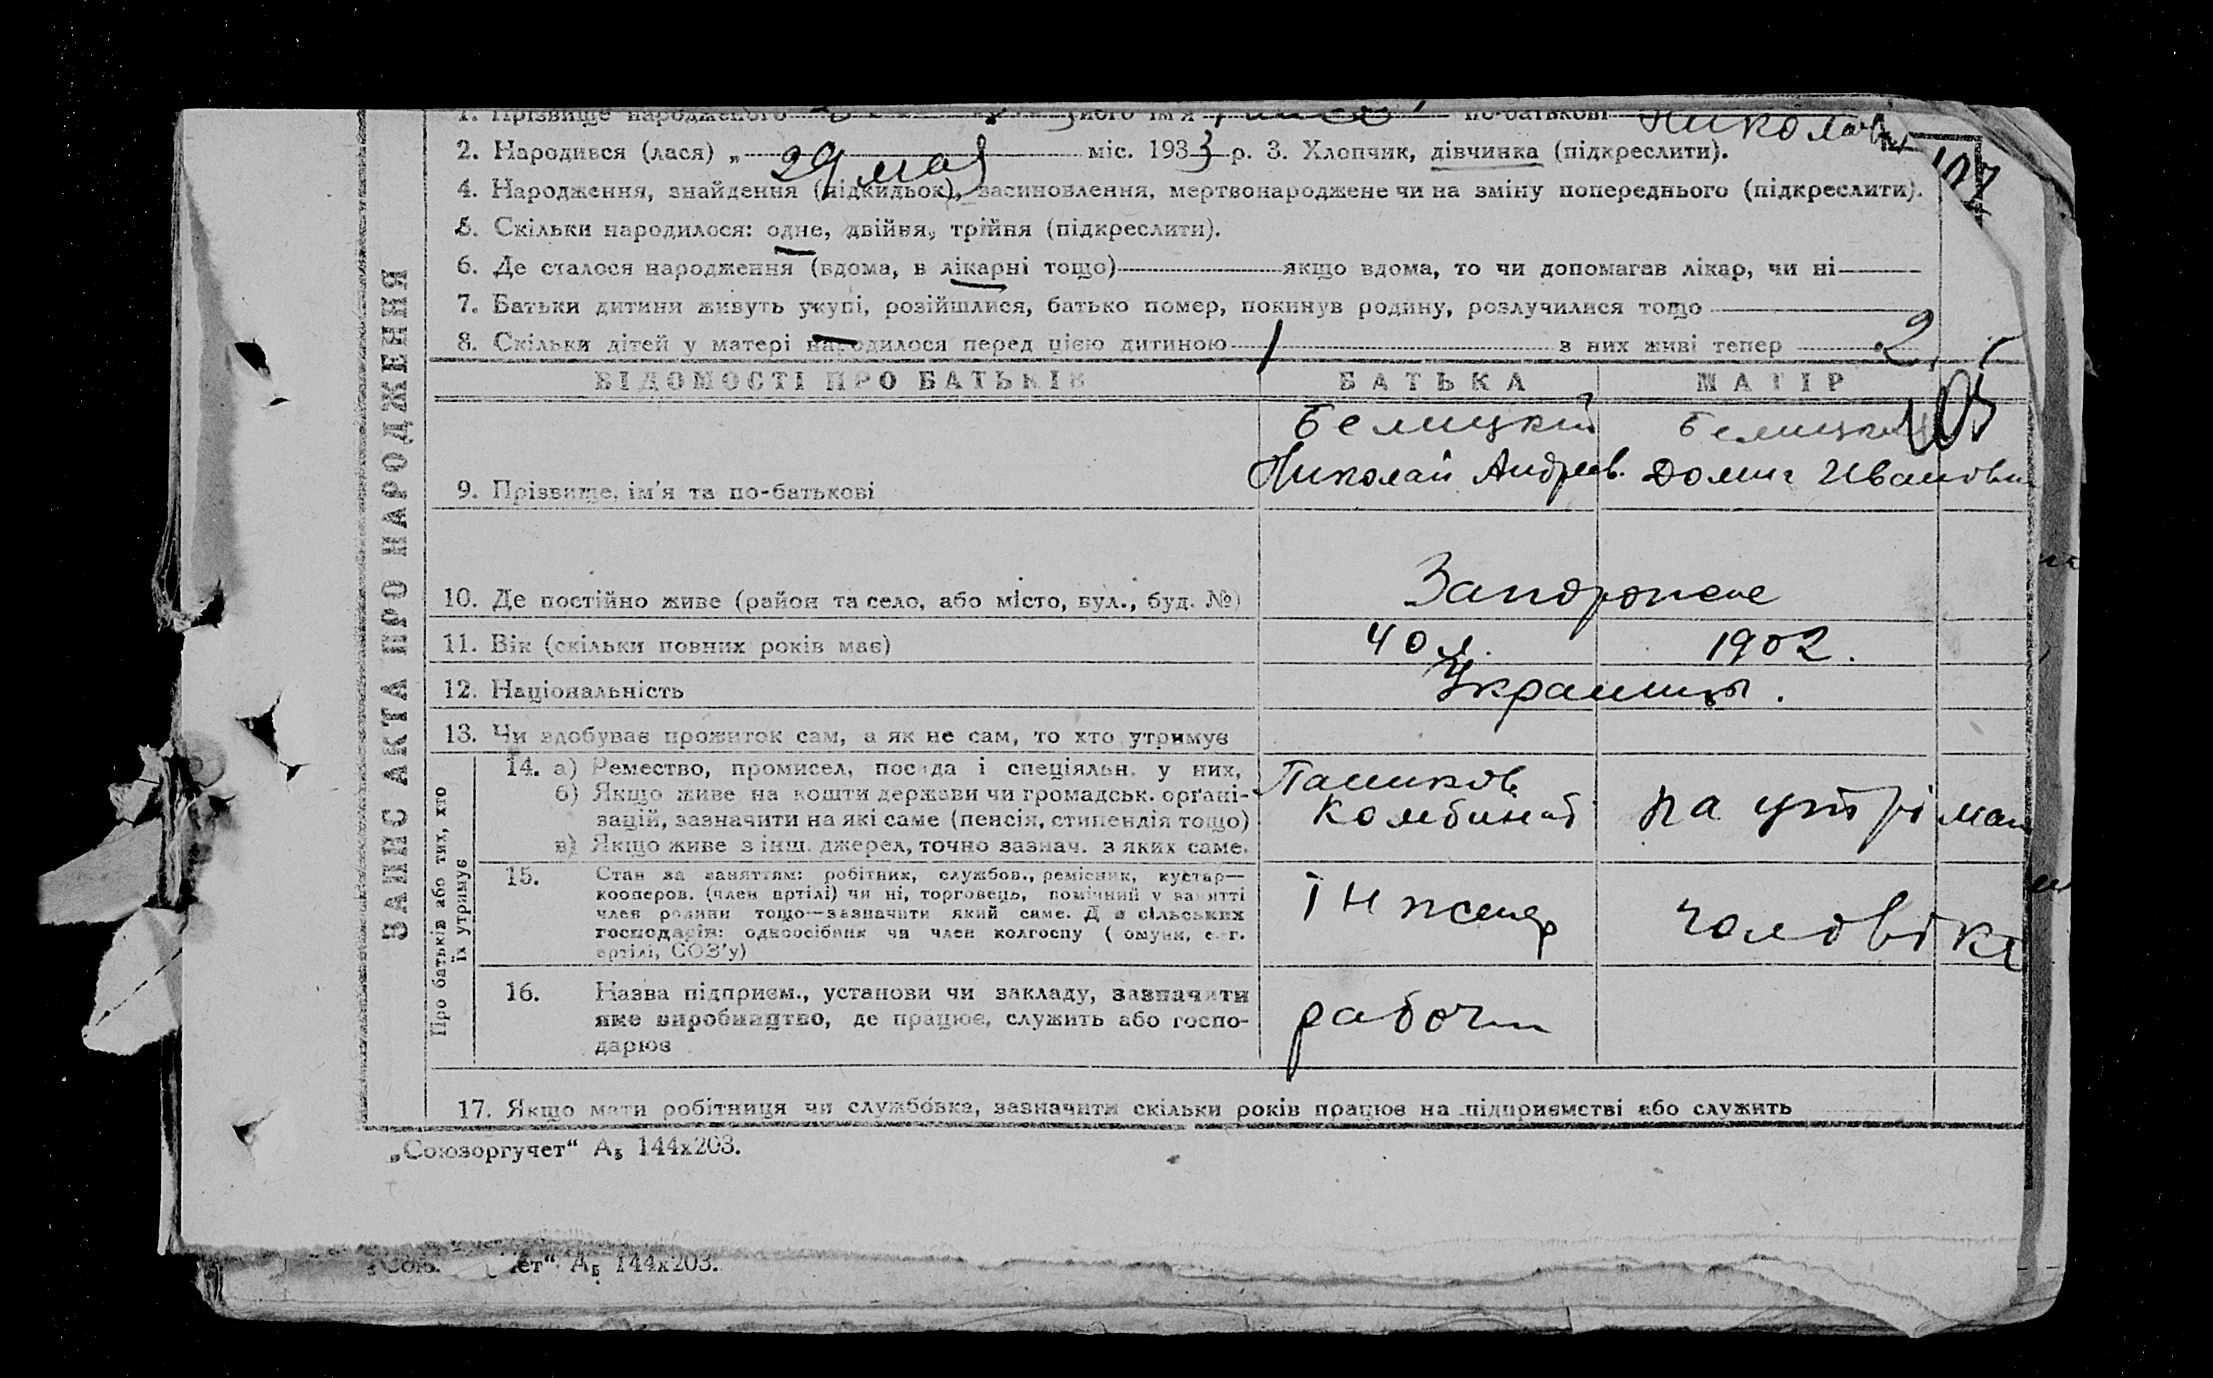 1. Прізвище народженого його ім'я по-батькові Николаевн
2. Народився (лася) „ 29 мая міс. 1933 р. 3. Хлопчик, дівчинка (підкреслити).
107
4. Народження, знайдення (підкидьок), засиновлення, мертвонароджене чи на зміну попереднього (підкреслити).
5. Скільки народилося: одне, двійня, трійня (підкреслити).
6. Де сталося народження (вдома, в лікарні тощо) якщо вдома, то чи допомагав лікар, чи ні
7. Батьки дитини живуть укупі, розійшлися, батько помер, покинув родину, розлучилися тощо
8. Скільки дітей у матері народилося перед цією дитиною 1 з них живі тепер 2
ВІДОМОСТІ ПРО БАТЬКІВ БАТЬКА МАТІР
105
9. Прізвище, ім'я та по-батькові
Белицкий
Николай Андреев.
Белицкая
Домна Ивановн
10. Де постійно живе (район та село, або місто, вул., буд. №) Запорожье
11. Вік (скільки повних років має) 40 л. 1902.
12. Національність Украинцы.
13. Чи здобуває прожиток сам, а як не сам, то хто утримує
14. а) Ремество, промисел, посада і спеціяльн. у них,
б) Якщо живе на кошти держави чи громадськ. орґані-
зацій, зазначити на які саме (пенсія, стипендія тощо)
в) Якщо живе з інш. джерел, точно зазнач. з яких саме.
комбинат
на утріман
15. Стан за заняттям: робітник, службов., ремісник, кустар—
кооперов. (член артілі) чи ні, торговець, помічний у занятті
член родини тощо—зазначити який саме. Для сільських
господарів: одноосібник чи член колгоспу (комуни, с.-г.
артілі, СОЗ'у)
інженер
чоловіка
16. Назва підприєм., установи чи закладу, зазначити
яке виробництво, де працює, служить або госпо-
дарює
рабочи
17. Якщо мати робітниця чи службовка, зазначити скільки років працює на підприємстві або служить
ЗАПИС АКТА ПРО НАРОДЖЕННЯ
Про батьків або тих, хто
їх утримує
„Союзоргучет“ А₅ 144х203.
ет“ А₅ 144х203.